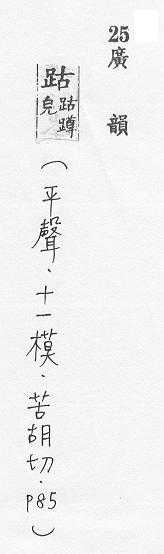 25廣韻
跍 跍蹲皃
(平聲．十一模．苦胡切．P85)